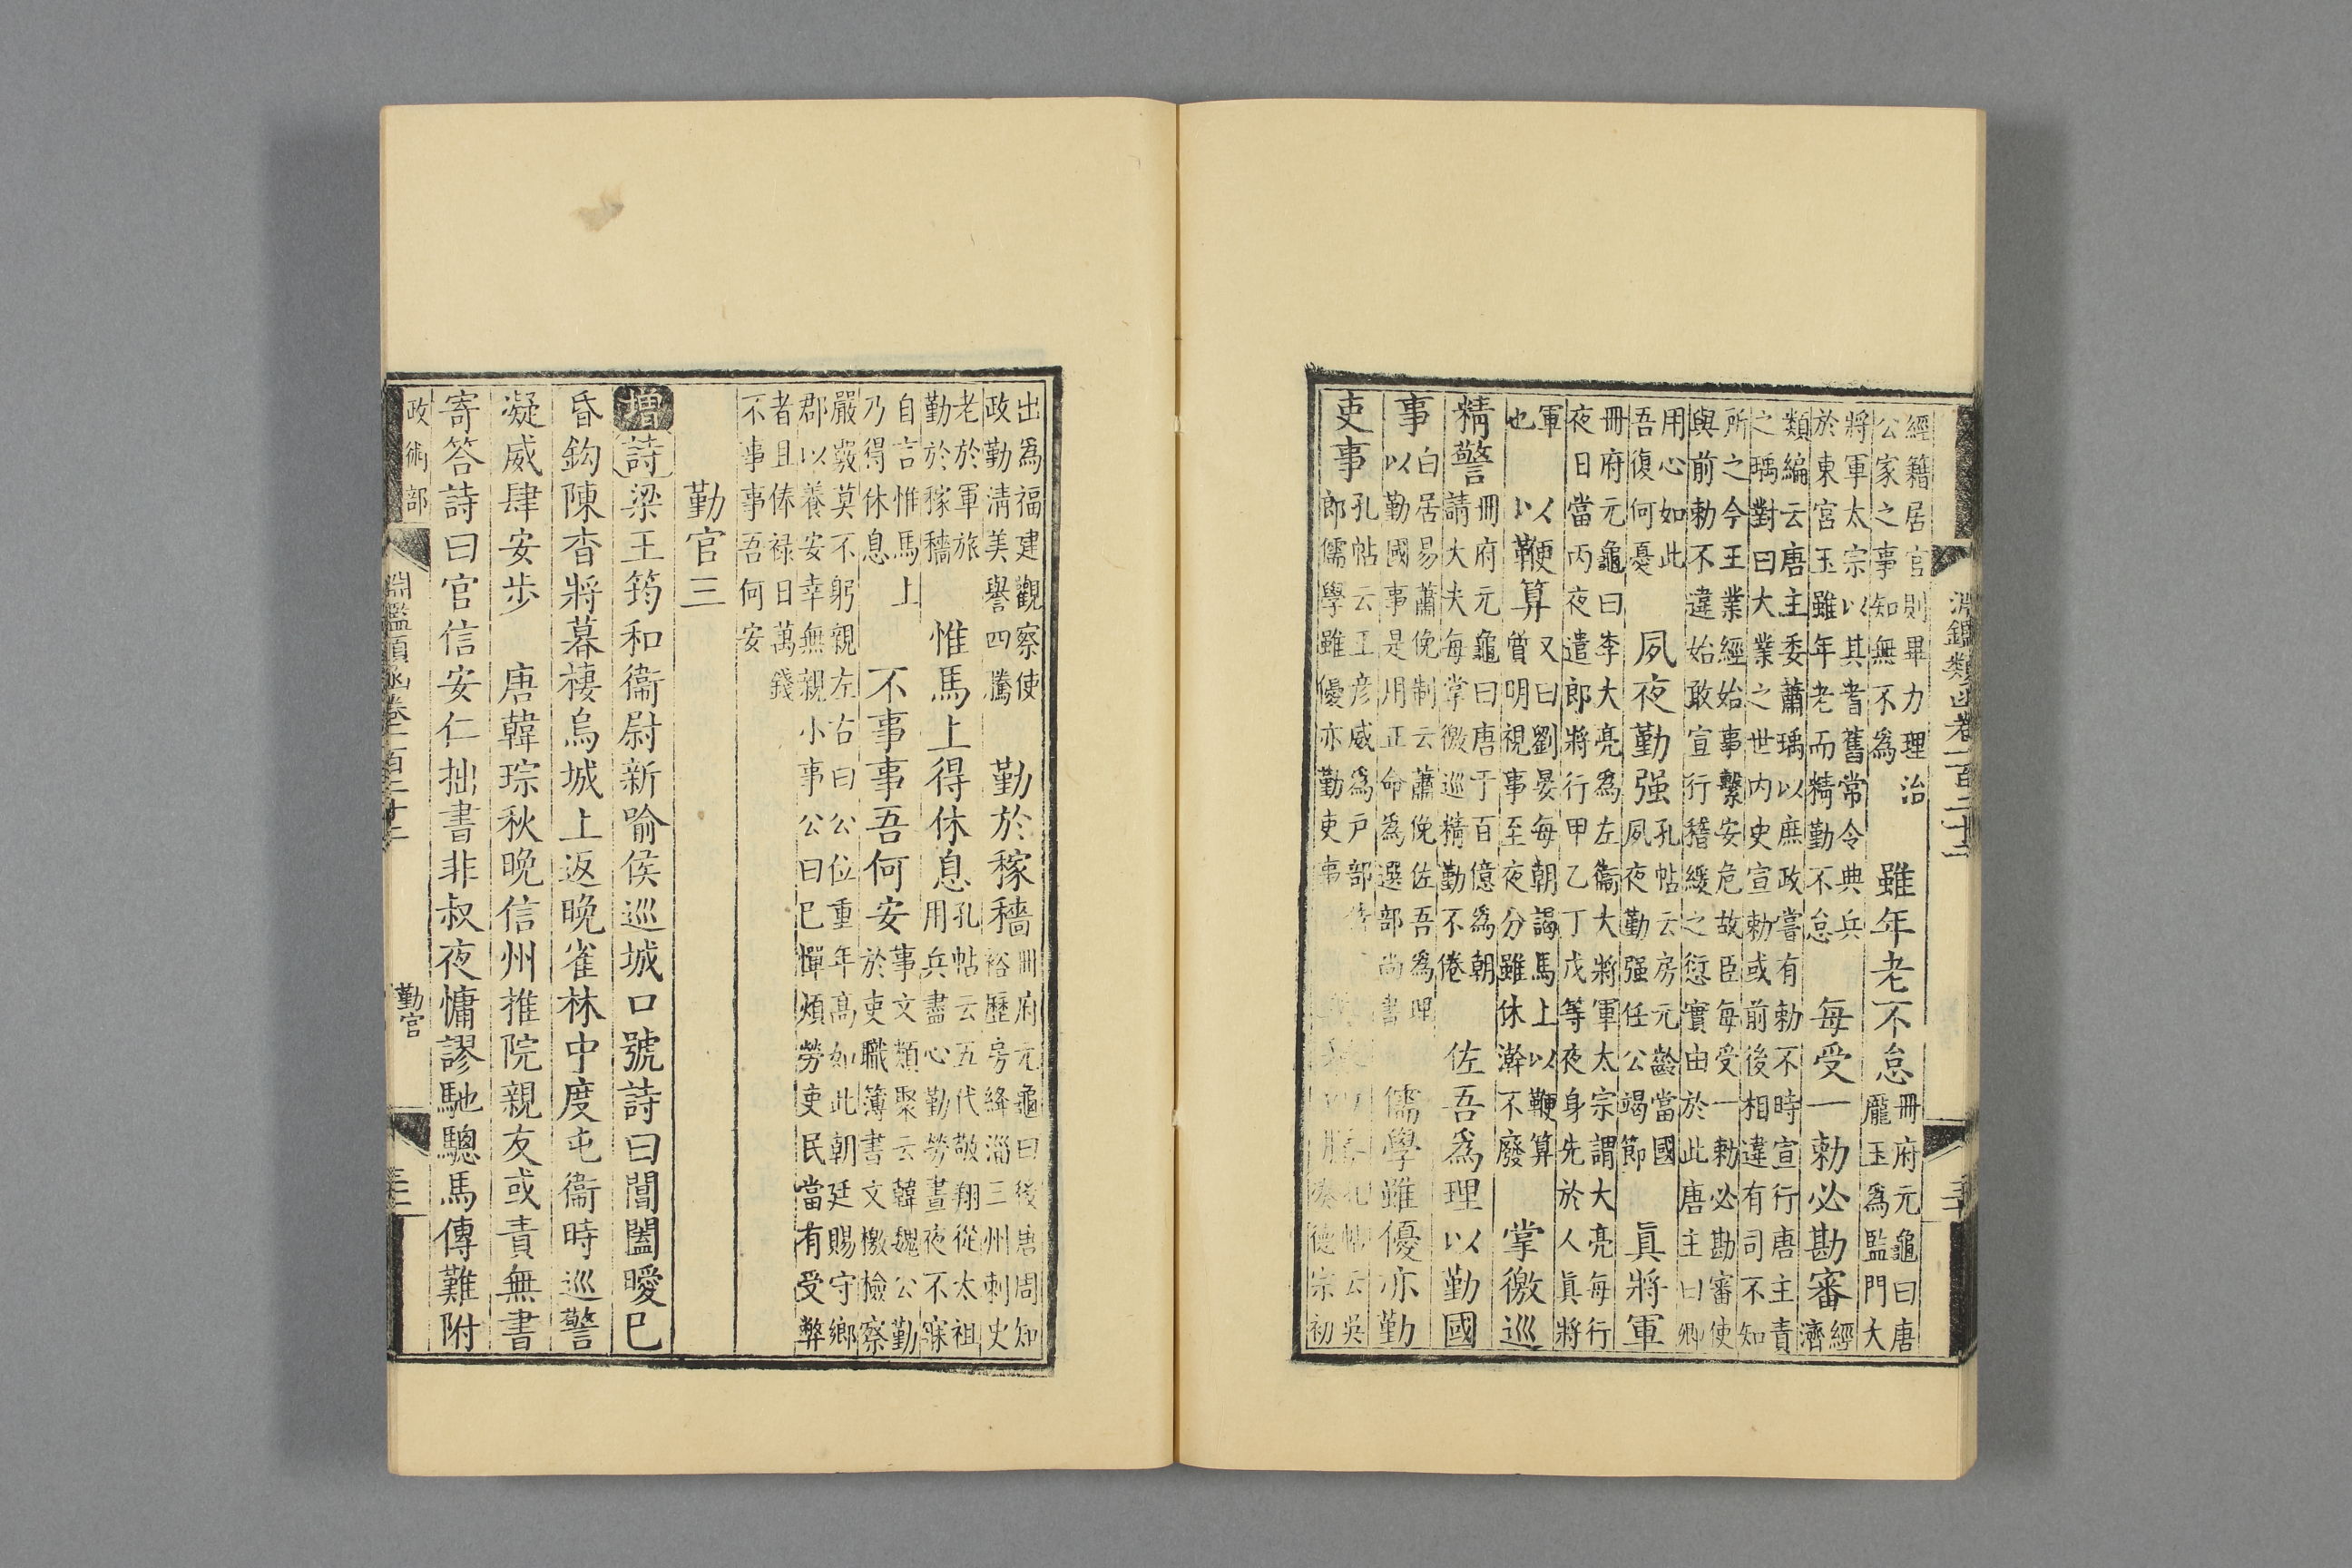 淵鑑類函卷一百二十二
三十
經籍居官則畢力理治
公家之事知無不為
雖年老不怠
冊府元龜曰唐
龐玉為監門大
將軍太宗以其耆舊常令典兵
於東宮玉雖年老而精勤不怠
每受一勅必勘審
經
濟
類編云唐主委蕭瑀以庶政嘗有勅不時宣行唐主責
之瑀對曰大業之世内史宣勅或前後相違有司不知
所之今王業經始事繫安危故臣每受一勅必勘審使
與前勅不違始敢宣行稽緩之愆實由於此唐主曰卿
用心如此
吾復何憂
夙夜勤强
孔帖云房元齡當國
夙夜勤强任公竭節
眞將軍
冊府元龜曰李大亮為左衞大將軍太宗謂大亮每行
夜日當丙夜遣郎將行甲乙丁戊等夜身先於人眞將
軍
也
以鞭算
又曰劉晏每朝謁馬上以鞭算
質明視事至夜分雖休澣不廢
掌徼巡
精警
冊府元龜曰唐于百億為朝
請大夫每掌徼巡精勤不倦
佐吾為理以勤國
事
白居易蕭俛制云蕭俛佐吾為理
以勤國事是用正命為選部尚書
儒學雖優亦勤
吏事
孔帖云王彦威為戸部侍
郎儒學雖優亦勤吏事
孔帖云吳
湊德宗初
出為福建觀察使
政勤清美譽四騰
勤於稼穡
冊府元龜曰後唐周知
裕歷房絳淄三州刺史
老於軍旅
勤於稼穡
惟馬上得休息
孔帖云五代敬翔從太祖
用兵盡心勤勞晝夜不寐
自言惟馬上
乃得休息
不事事吾何安
事文類聚云韓魏公勤
於吏職簿書文檄檢察
嚴毅莫不躬親左右曰公位重年高如此朝廷賜守鄉
郡以養安幸無親小事公曰已憚煩勞吏民當有受弊
者且俸禄日萬錢
不事事吾何安
勤官三
增詩梁王筠和衞尉新喻侯巡城口號詩曰閶闔曖已
昏鈎陳杳將暮棲烏城上返晩雀林中度屯衞時巡警
凝威肆安步 唐韓琮秋晩信州推院親友或責無書
寄答詩曰官信安仁拙書非叔夜慵謬馳驄馬傳難附
政術部
淵鑑類函卷一百二十二
勤官